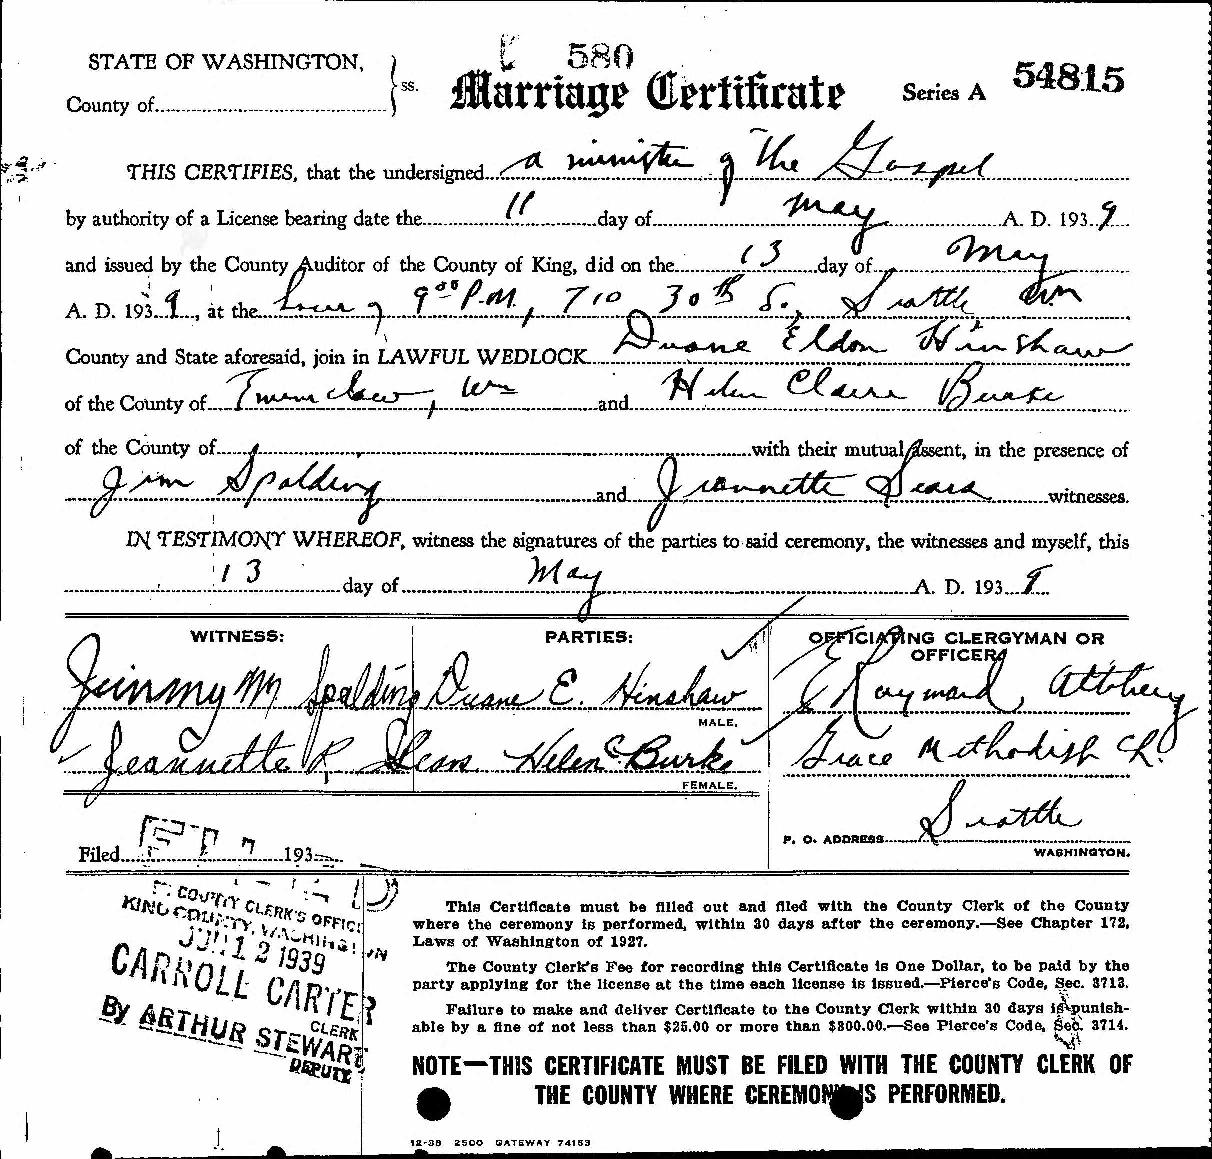 580
STATE OF WASHINGTON, ss. Marriage Certificate Series A 54815
County of
THIS CERTIFIES, that the undersigned a minister of the Gospel
by authority of a License bearing date the 11 day of May A. D. 1939
and issued by the County Auditor of the County of King, did on the 13 day of May
A. D. 1939, at the hour of 9:00 P.M., 710 30th S., Seattle Wn
County and State aforesaid, join in LAWFUL WEDLOCK Duane Eldon Hinshaw
of the County of Enumclaw, Wn and Helen Claire Burke
of the County of with their mutual assent, in the presence of
Jim Spalding and Jeannette Sears witnesses.
IN TESTIMONY WHEREOF, witness the signatures of the parties to said ceremony, the witnesses and myself, this
13 day of May A. D. 1939
WITNESS: PARTIES: OFFICIATING CLERGYMAN OR
OFFICER:
Jimmy M Spalding Duane E. Hinshaw E Raymond Attebery
MALE.
Jeannette R Sears Helen C Burke Grace Methodist Ch.
FEMALE.
Seattle
P. O. ADDRESS
WASHINGTON.
Filed 193
COUNTY CLERK'S OFFICE
KING COUNTY, WASHINGTON
JUN 12 1939
CARROLL CARTER
CLERK
By ARTHUR STEWART
DEPUTY
This Certificate must be filled out and filed with the County Clerk of the County
where the ceremony is performed, within 30 days after the ceremony.—See Chapter 172,
Laws of Washington of 1927.
The County Clerk's Fee for recording this Certificate is One Dollar, to be paid by the
party applying for the license at the time each license is issued.—Pierce's Code, Sec. 3713.
Failure to make and deliver Certificate to the County Clerk within 30 days is punish-
able by a fine of not less than $25.00 or more than $300.00.—See Pierce's Code, Sec. 3714.
NOTE—THIS CERTIFICATE MUST BE FILED WITH THE COUNTY CLERK OF
THE COUNTY WHERE CEREMONY IS PERFORMED.
12-38 2500 GATEWAY 74153